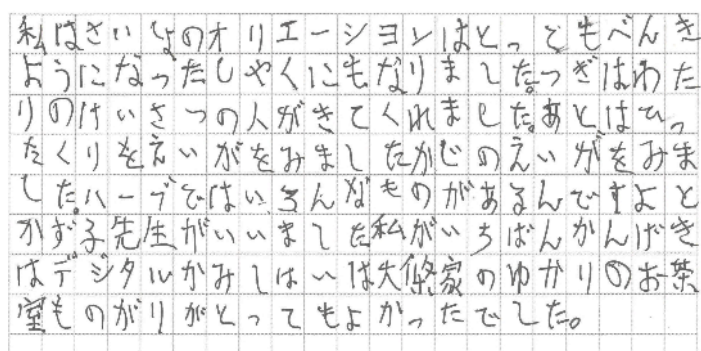 私はさいしょのオリエーションはとってもべんき
ようになったしやくにもなりました。つぎはわた
りのけいさつの人がきてくれました。あとはひっ
たくりをえいがをみましたかじのえいがをみま
した。ハーブではいろんなものがあるんですよと
かず子先生がいいました私がいちばんかんげき
はデジタルかみしはいは大條家のゆかりのお茶
室ものがりがとってもよかったでした。